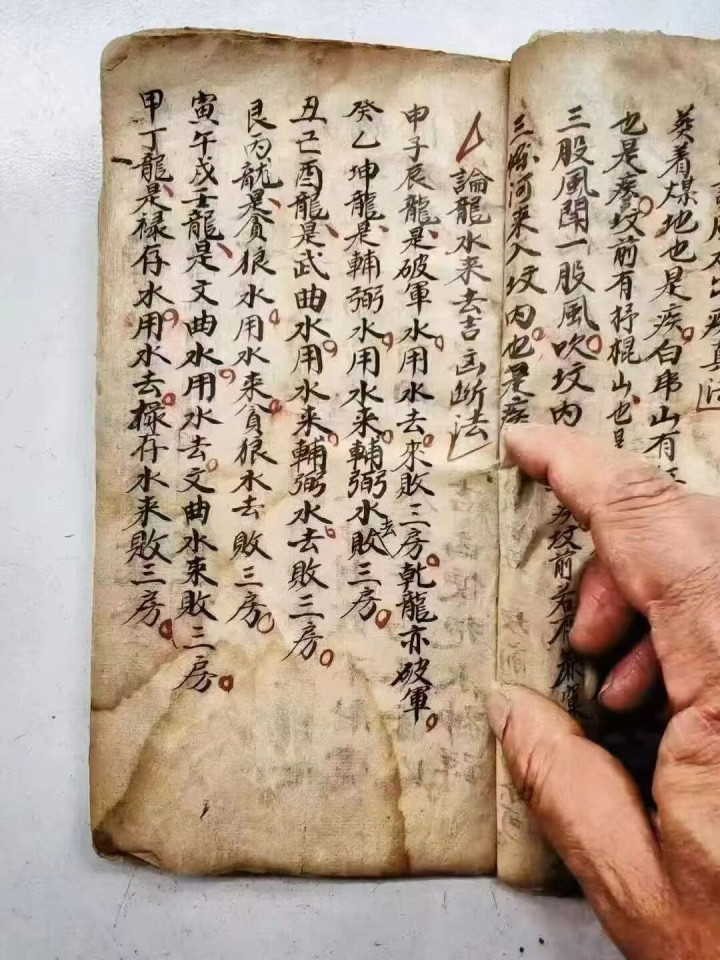 葬着煤地也是疾白帝山有
也是瘆坟前有抒棍山也是
三股風開一股風吹坟内
河来入坟内也是疾
坟前若有
論龍水来去吉凶断法
申子辰龍是破軍水用水去來敗三房乾龍亦破軍
癸乙坤龍是輔弼水用水来輔弼水去敗三房
丑己酉龍是武曲水用水来輔弼水去敗三房
艮丙龍是貪狼水用水来貪狼水去敗三房
寅午戌壬龍是文曲水用水去文曲水来敗三房
甲丁龍是祿存水用水去祿存水来敗三房